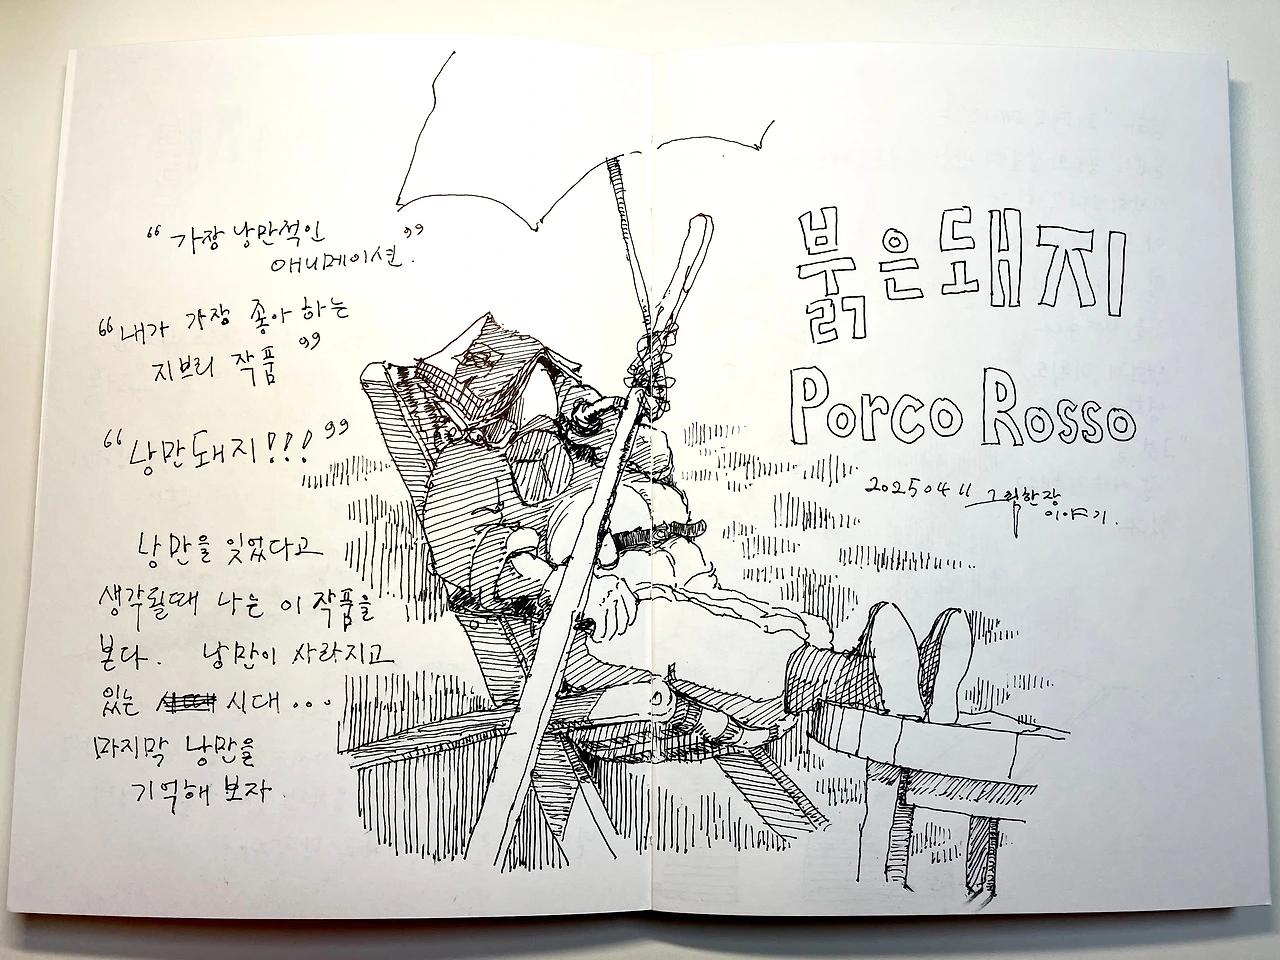 “가장 낭만적인
애니메이션.”
“내가 가장 좋아하는
지브리 작품”
“낭만돼지!!!”
낭만을 잊었다고
생각될때 나는 이 작품을
본다. 낭만이 사라지고
있는 시대...
마지막 낭만을
기억해 보자.
붉은돼지
Porco Rosso
20250411 그림한장
이야기.